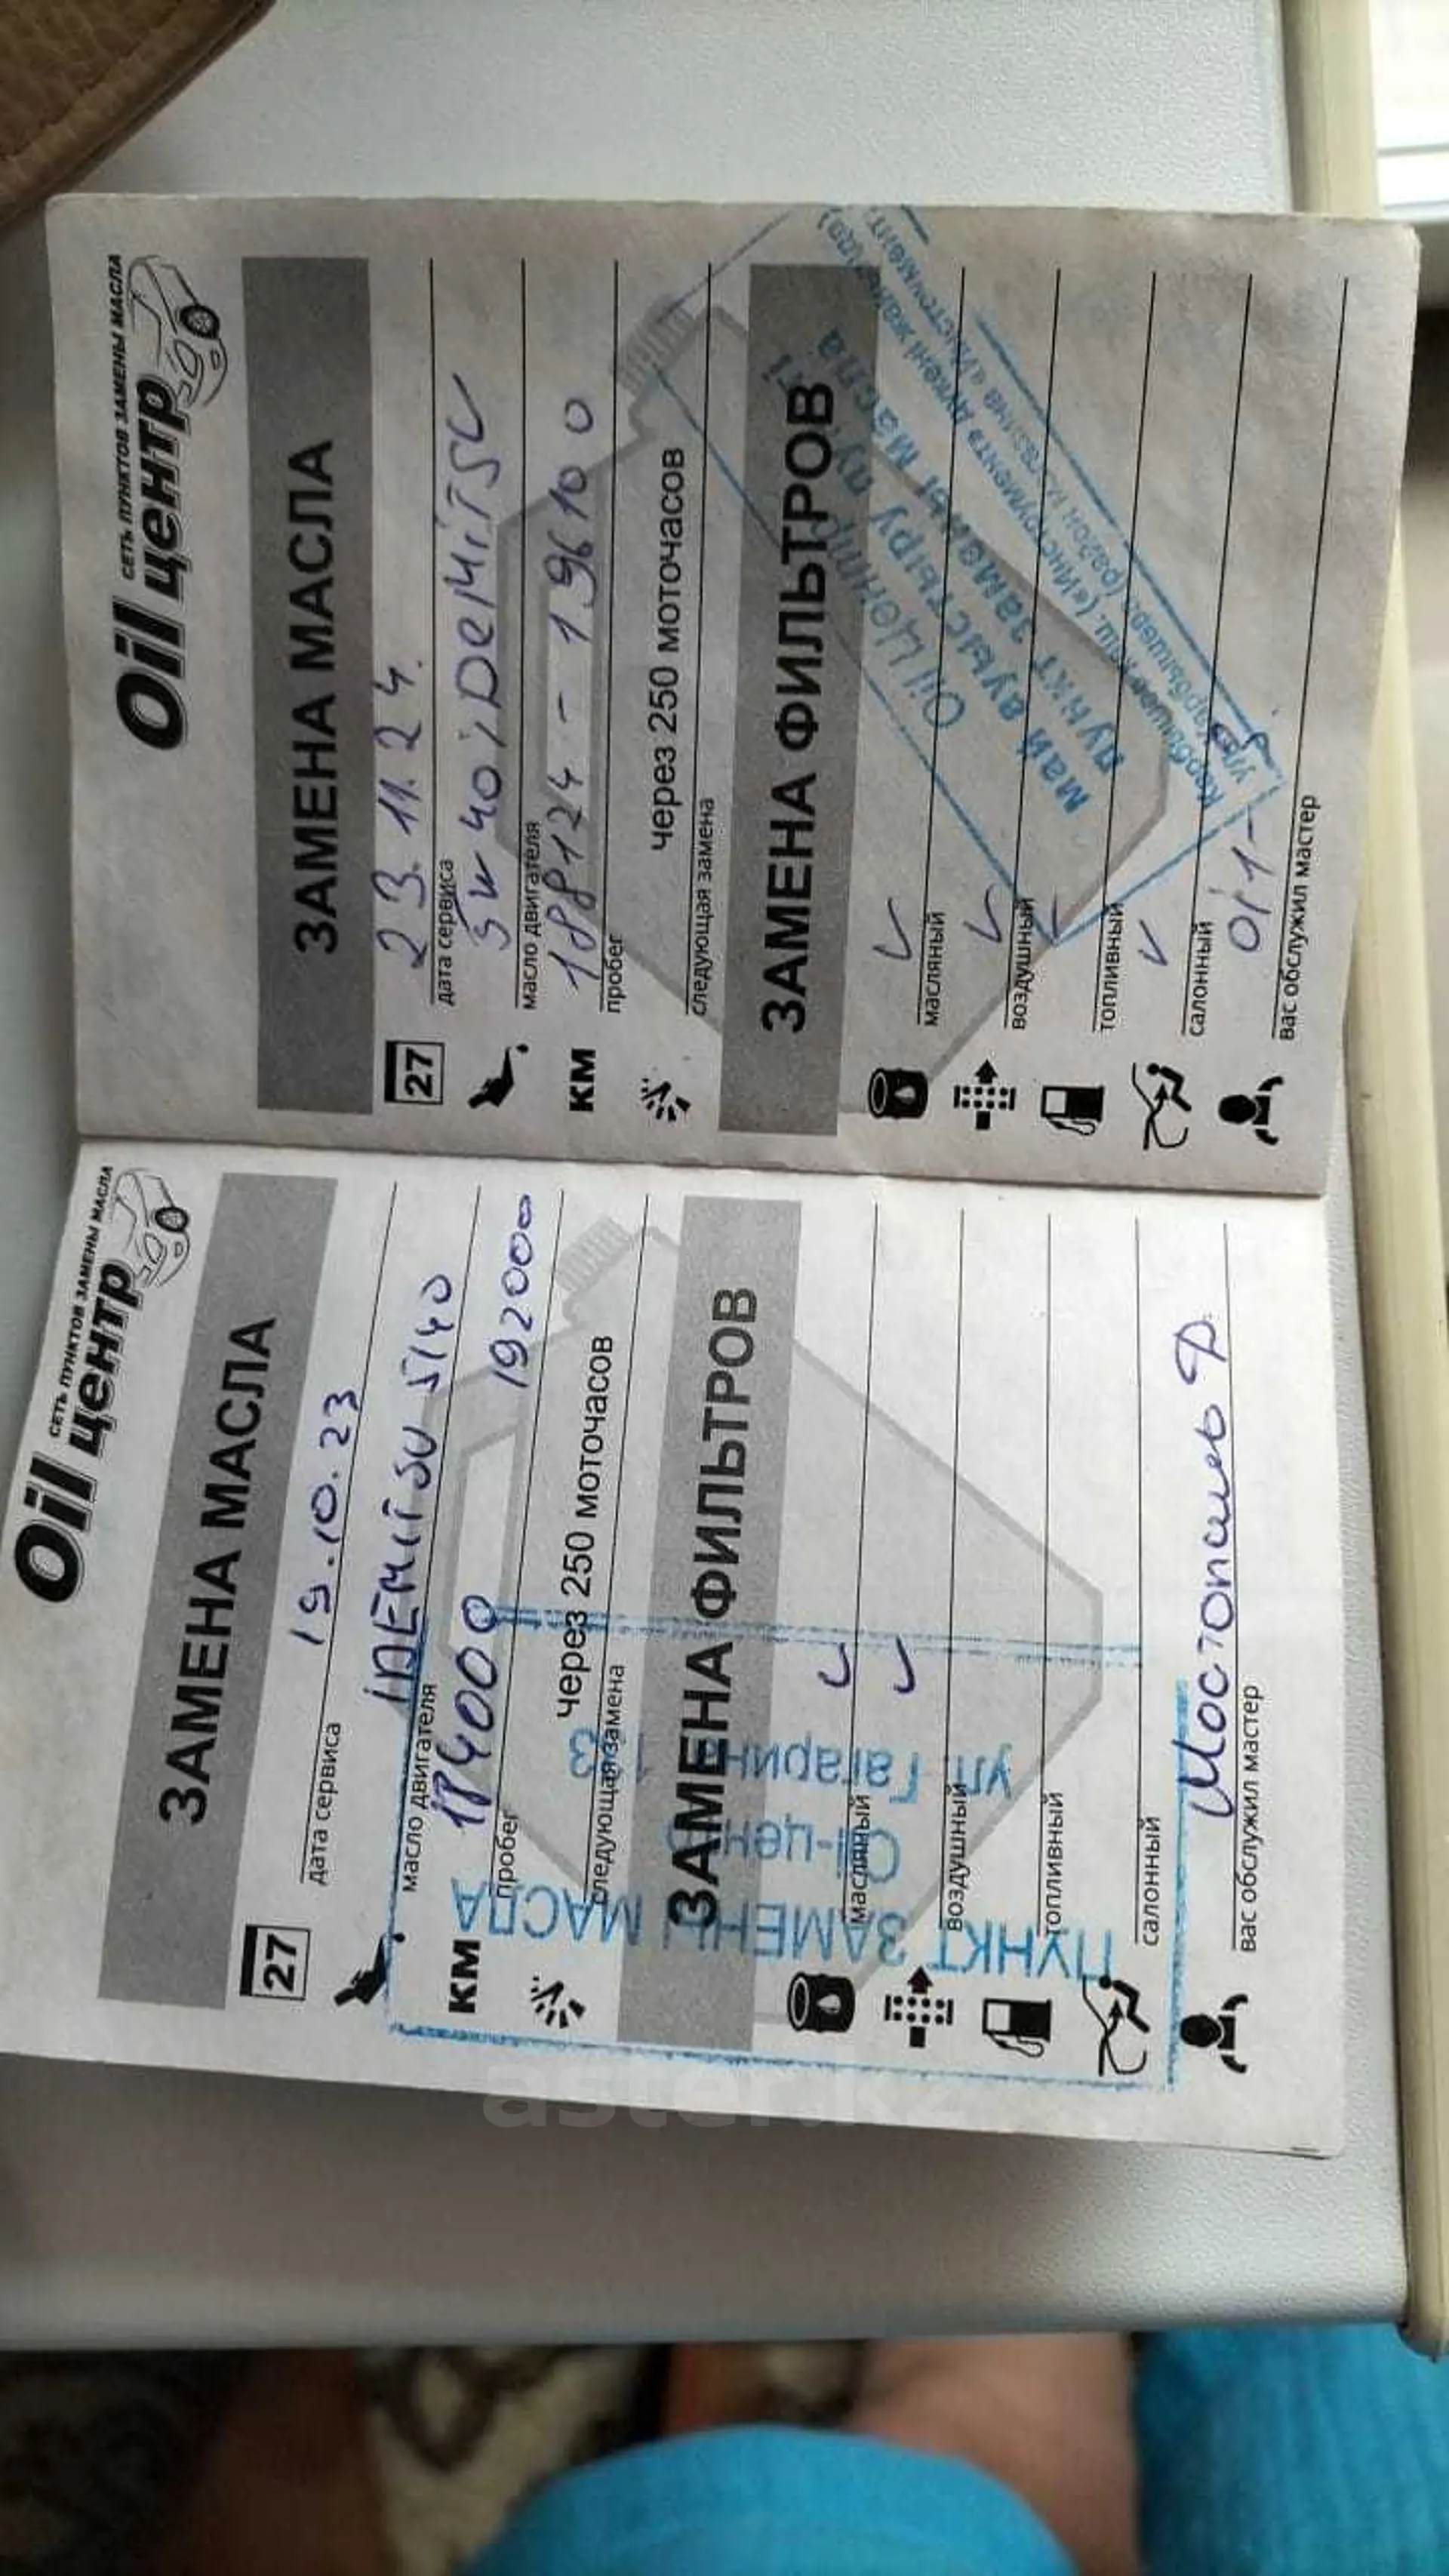 Oil центр
СЕТЬ ПУНКТОВ ЗАМЕНЫ МАСЛА
ЗАМЕНА МАСЛА
27
19.10.23
дата сервиса
iDEMiTSU 5/40
масло двигателя
КМ
184000 192000
пробег
через 250 моточасов
следующая замена
ЗАМЕНА ФИЛЬТРОВ
масляный
воздушный
топливный
салонный
вас обслужил мастер
ПУНКТ ЗАМЕНЫ МАСЛА
ул. Гагарина
Oil центр
СЕТЬ ПУНКТОВ ЗАМЕНЫ МАСЛА
ЗАМЕНА МАСЛА
27
23.11.24.
дата сервиса
5w40 iDeMiTSU
масло двигателя
КМ
188124 - 196100
пробег
через 250 моточасов
следующая замена
ЗАМЕНА ФИЛЬТРОВ
масляный
воздушный
топливный
салонный
вас обслужил мастер
Oil Центр
май ауыстыру
пункт замены масла
aster.kz